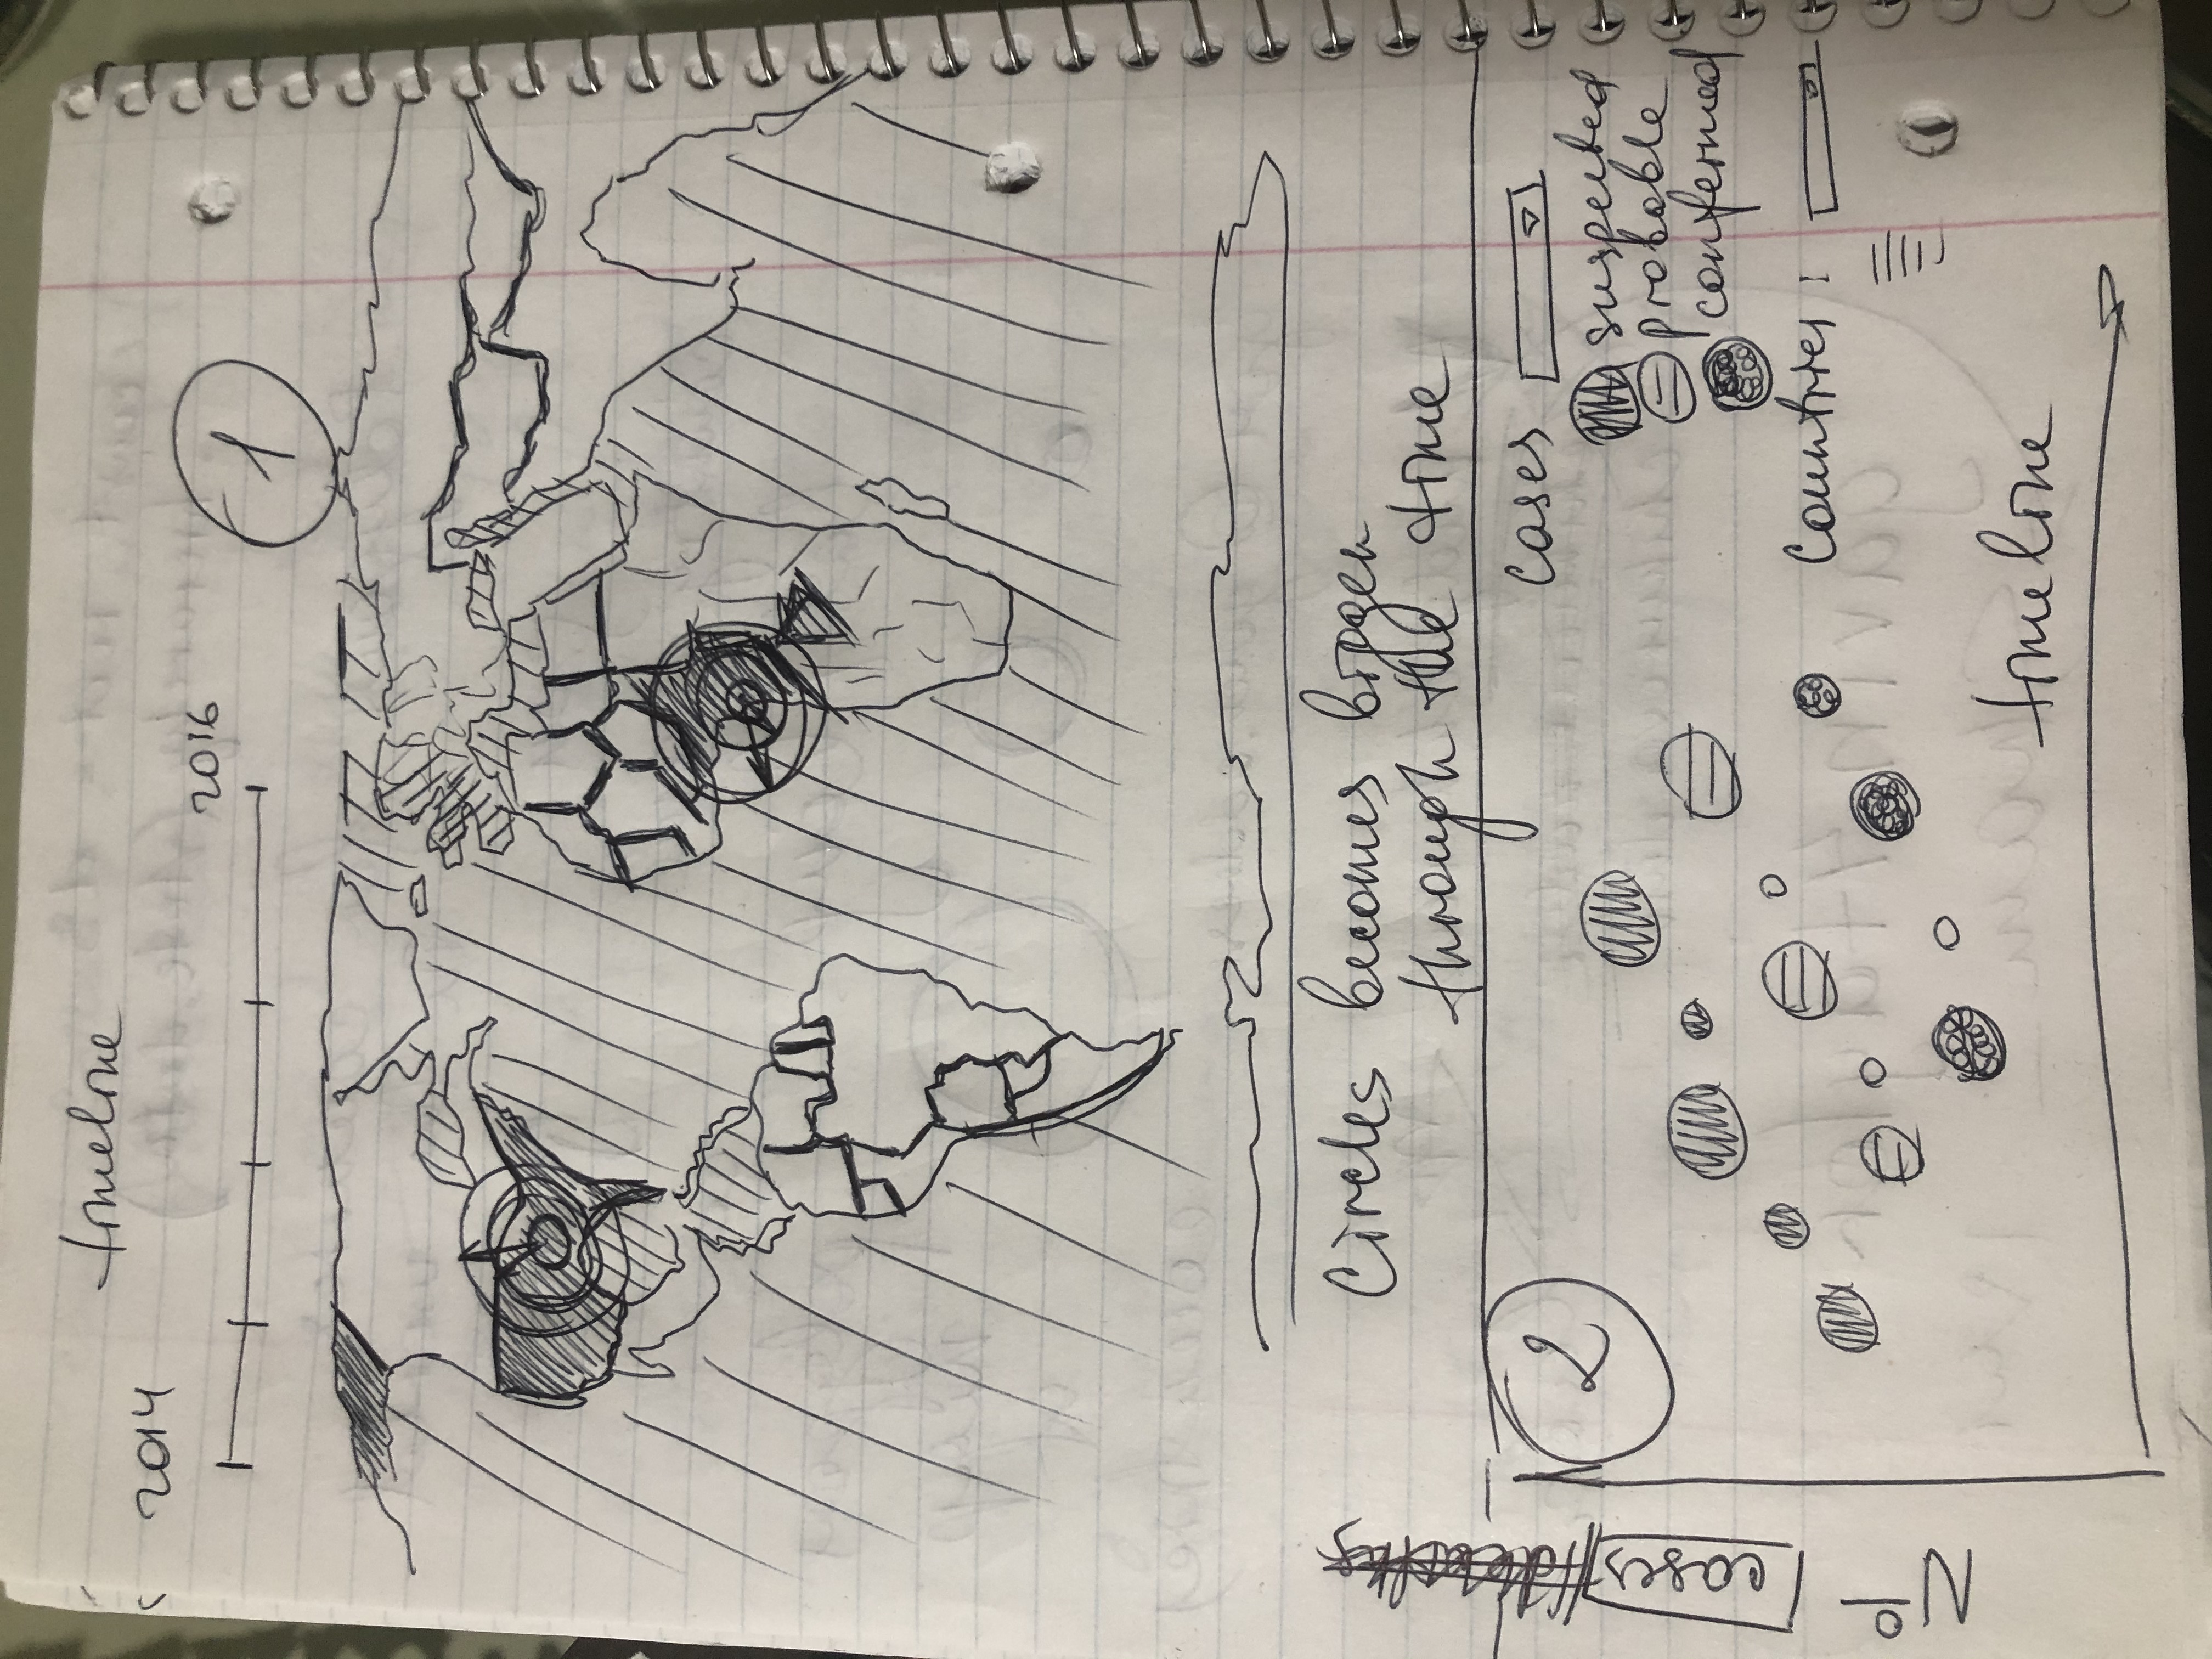 timeline
2014
2016
1
Circles becomes bigger
through the time
2
Nº cases
cases
suspected
probable
confermed
Countries :
timeline